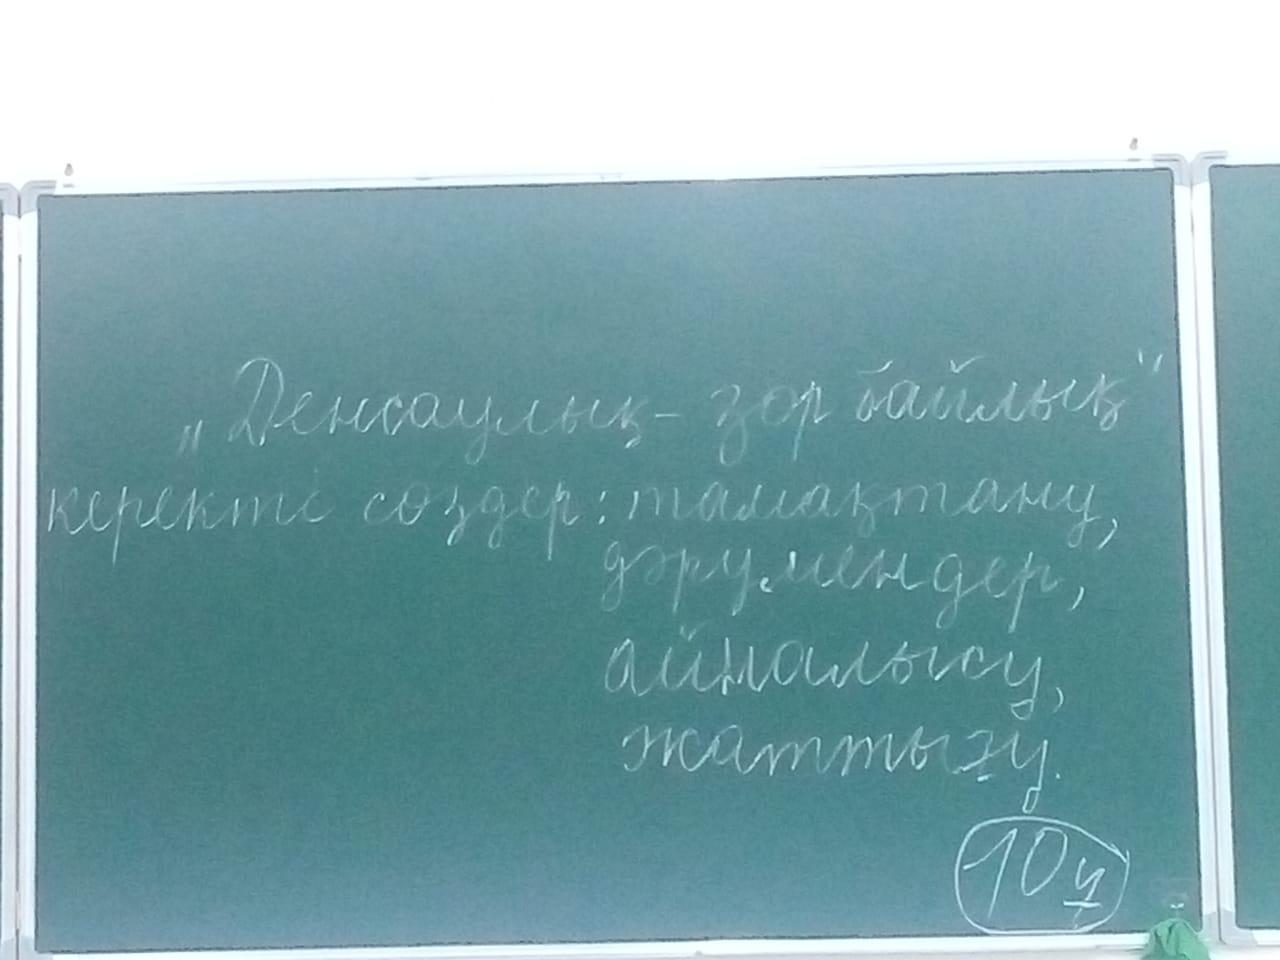 „Денсаулық – зор байлық"
керекті сөздер: тамақтану,
дәрумендер,
айналысу,
жаттығу.
10 ү